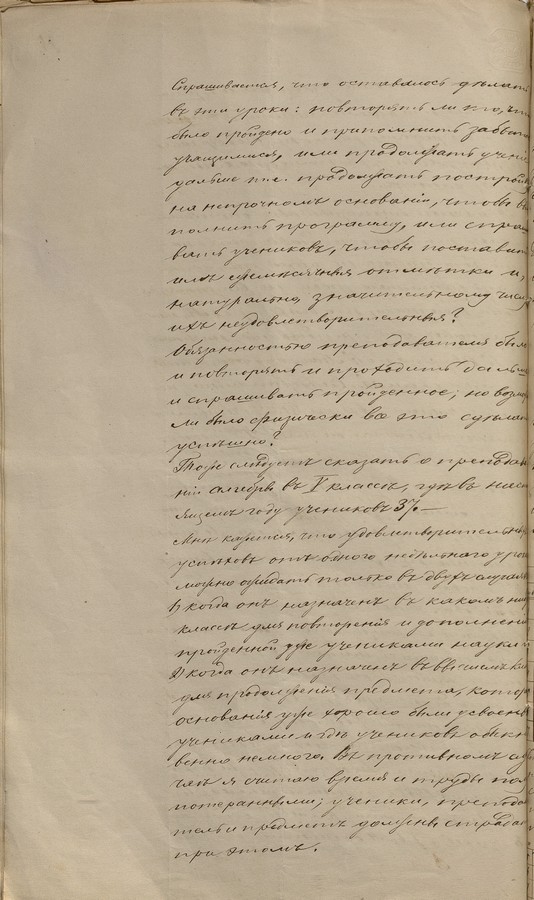 Спрашивается, что оставалось дѣлать
въ эти уроки: повторять ли то, что
было пройдено и припомнить забыто
учащимися, или продолжать учені
дальше т.е. продолжать постройк
на непрочномъ основаніи, чтобы вы
полнить программу, или спраши
вать учениковъ, чтобы поставить
имъ отмѣтки и,
натурально, значительному числу
ихъ неудовлетворительныя?
Обязанностью преподавателя было
и повторять и проходить дальше
и спрашивать пройденное; но возмож
ли было физически все это сдѣлать
успѣшно?
Тоже слѣдуетъ сказать о преподава
ніи алгебры въ V классѣ, гдѣ въ наст
ящемъ году учениковъ 37.—
Мнѣ кажется, что удовлетворительны
успѣховъ отъ одного недѣльнаго урок
можно ожидать только въ двухъ случая
1) когда онъ назначенъ въ какомъ ниб
классѣ для повторенія и дополнені
пройденной уже учениками науки и
2) когда онъ назначенъ въ высшемъ кл
для продолженія предмета, котор
основанія уже хорошо были усвоены
учениками и гдѣ учениковъ обыкн
венно немного. Въ противномъ слу
чаѣ я считаю время и труды
потерянными; ученики, препода
тель и предметъ должны страдат
при этомъ.